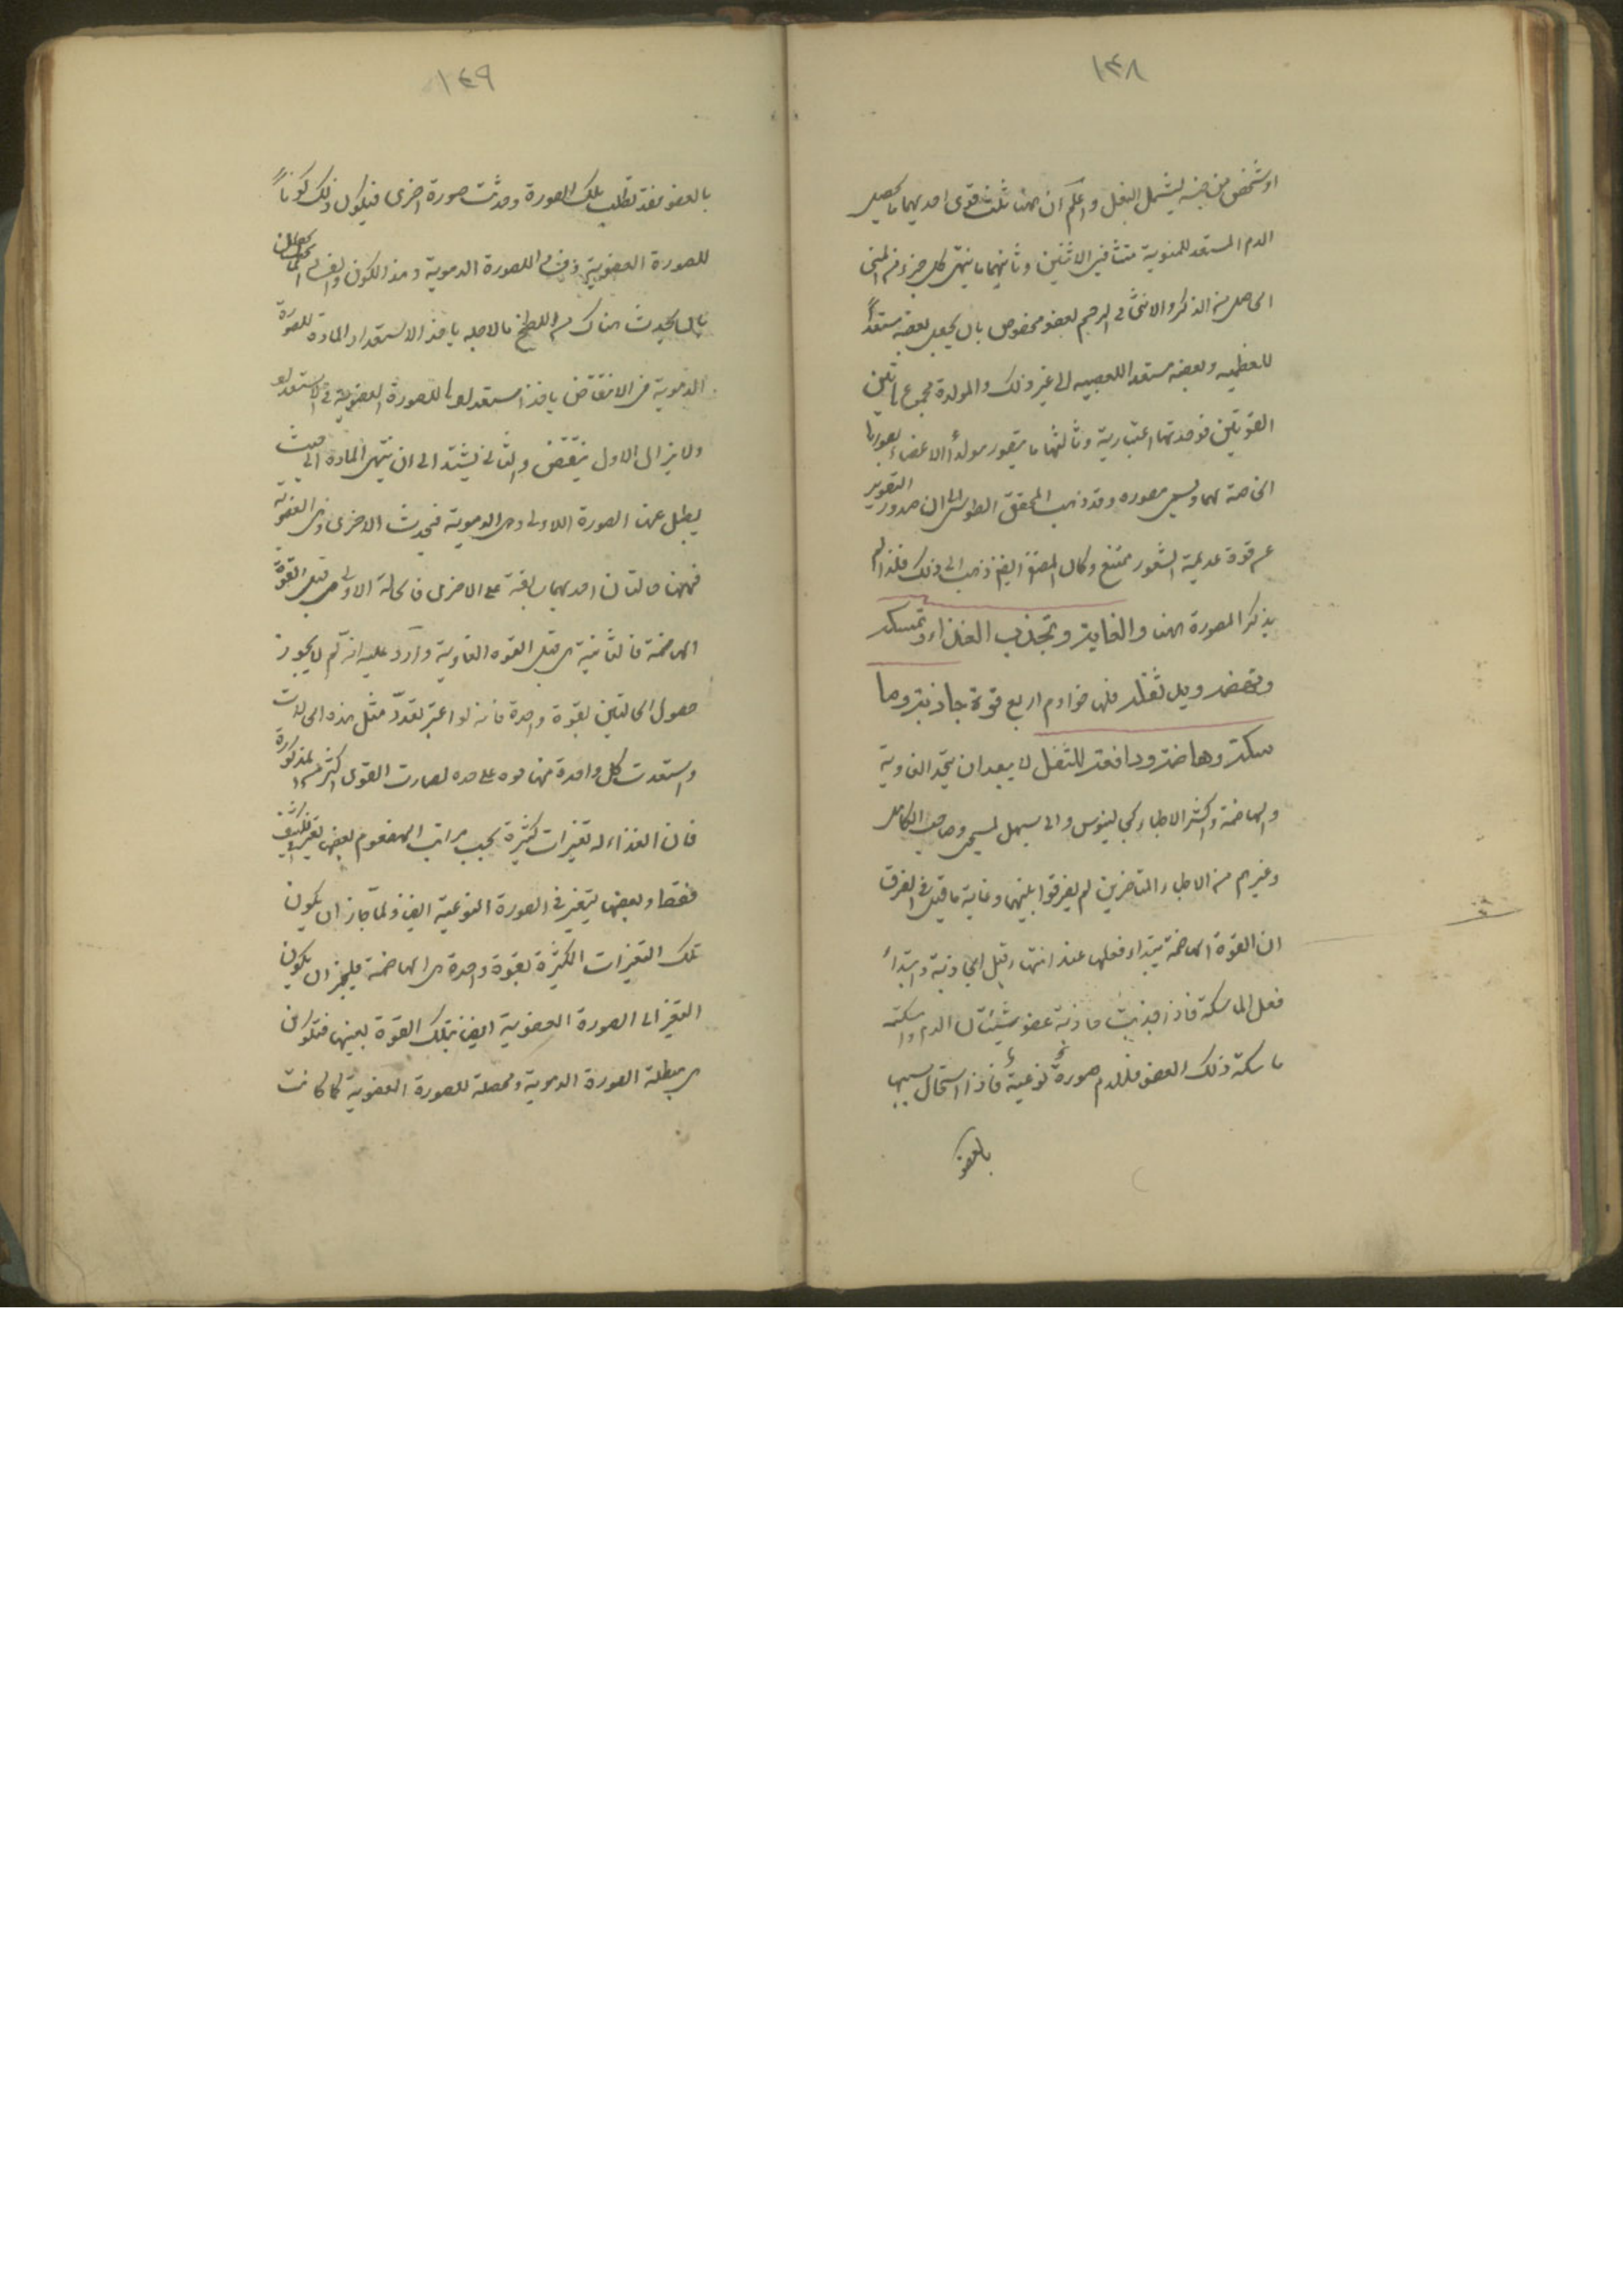 ١٤٨
او شخص من جنسه ليشمل البغل واعلم ان ههنا ثلث قوى احديهما ما يحصل
الدم المستعد للمنوية في الانثيين وثانيهما ما يهيئ كل جزء من المنى
الحاصل من الذكر والانثى في الرحم لعضو مخصوص بان يجعل بعضه مستعدا
للعظمية وبعضه مستعدا للعصبية الى غير ذلك والمولدة مجموع هاتين
القوتين فوحدتها اعتبارية وثالثها ما يتصور مواد الاعضاء بصورها
الخاصة بها ويسمى مصورة وقد ذهب المحقق الطوسى الى ان صدور التصوير
عن قوة عديمة الشعور ممتنع وكان المصنف ايضا ذهب الى ذلك فلذا لم
يذكر المصورة ههنا والغاذية تجذب الغذاء وتمسكه
وتهضمه وبدفع ثفله فلها خوادم اربع قوة جاذبة وما
سكة وهاضمة ودافعة للثفل لا يبعد ان يتحد الغاذية
والهاضمة واكثر الاطباء كجالينوس وابى سهل المسيحى وصاحب الكامل
وغيرهم من الاطباء المتاخرين لم يفرقوا بينهما وغاية ما قيل في الفرق
ان القوة الهاضمة يبتداء فعلها عند انتهاء فعل الجاذبة وابتداء
فعل الماسكة فاذا جذبت جاذبة عضو شيئا من الدم وامسكته
ماسكة ذلك العضو فللدم صورة نوعية فاذا استحال شبيها
بالعضو
١٤٩
بالعضو فقد بطلت تلك الصورة وحدثت صورة اخرى فيكون ذلك كونا
للصورة العضوية وفسادا للصورة الدموية وهذا الكون والفساد انما يحصلان
بان يحدث هناك من الطبخ ما لاجله ياخذ الاستعداد المادة للصورة
الدموية في الانتقاص ياخذ استعدادها للصورة العضوية في الاشتداد
ولا يزال الاول ينتقص والثانى يشتد الى ان ينتهى المادة الى حيث
يبطل عنها الصورة الاولى وهى الدموية فيحدث الاخرى وهى العضوية
فههنا حالتان احديهما سابقة على الاخرى فالحالة الاولى هى فعل القوة
الهاضمة فالثانية هى فعل القوه الغاذية واورد عليه انه لم لا يجوز
حصول الحالتين بقوة واحدة فانه لو اعتبر تعدد مثل هذه الحالات
واستعدت كل واحدة منها قوه على حده لصارت القوى اكثر من المذكورة
فان الغذاء له تغيرات كثيرة بحسب مراتب الهضوم بعضها تغير في الكيف
فقط وبعضها يتغير في الصورة النوعية ايضا ولما جاز ان يكون
تلك التغيرات الكثيرة بقوة واحدة هى الهاضمة فليجز ان يكون
التغير الى الصورة العضوية ايضا بتلك القوة بعينها فتكون
هى مبطلة الصورة الدموية ومحصلة للصورة العضوية كما كانت